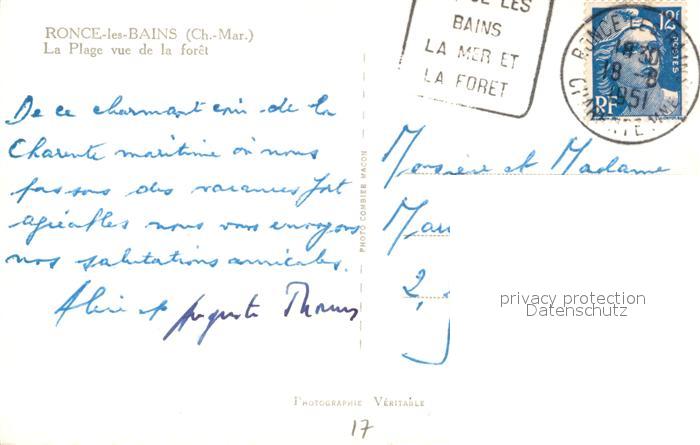 RONCE-les-BAINS (Ch.-Mar.)
La Plage vue de la forêt
De ce charmant coin de la
Charente maritime où nous
passons des vacances fort
agréables nous vous envoyons
nos salutations amicales.
et Auguste Thomas
PHOTO COMBIER MACON
LES
BAINS
LA MER ET
LA FORET
12F
POSTES
RF
RONCE LES BAINS
18 -8
1951
CHARENTE MME
Monsieur et Madame
Mau
2,
privacy protection
Datenschutz
PHOTOGRAPHIE VÉRITABLE
17